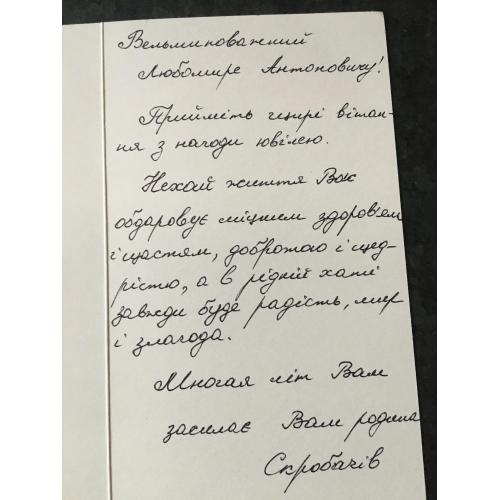 Вельмиповажний
Любомире Антоновичу!
Прийміть щирі вітан-
ня з нагоди ювілею.
Нехай життя Вас
обдаровує міцним здоров'ям
і щастям, добротою і щед-
рістю, а в рідній хаті
завжди буде радість, мир
і злагода.
Многая літ Вам
засилає Вам родина
Скробачів